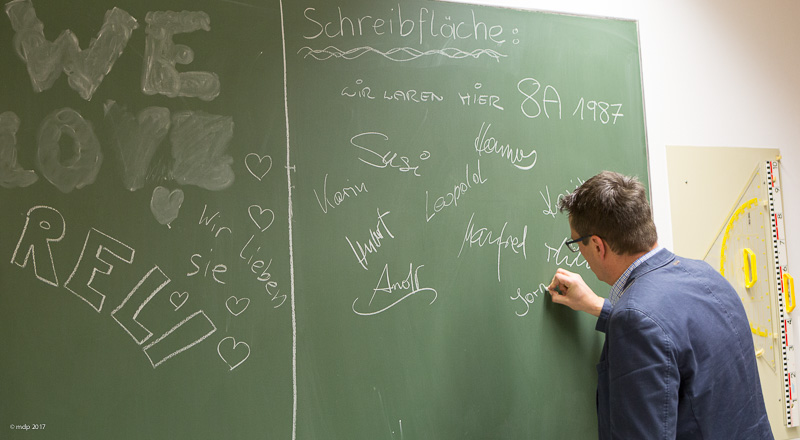 WE
LOVE
RELI
Wir
lieben
sie
Schreibfläche:
WIR WAREN HIER 8A 1987
Susi
Hannes
Karin
Leopold
Kurt
Manfred
Andi
© mdp 2017